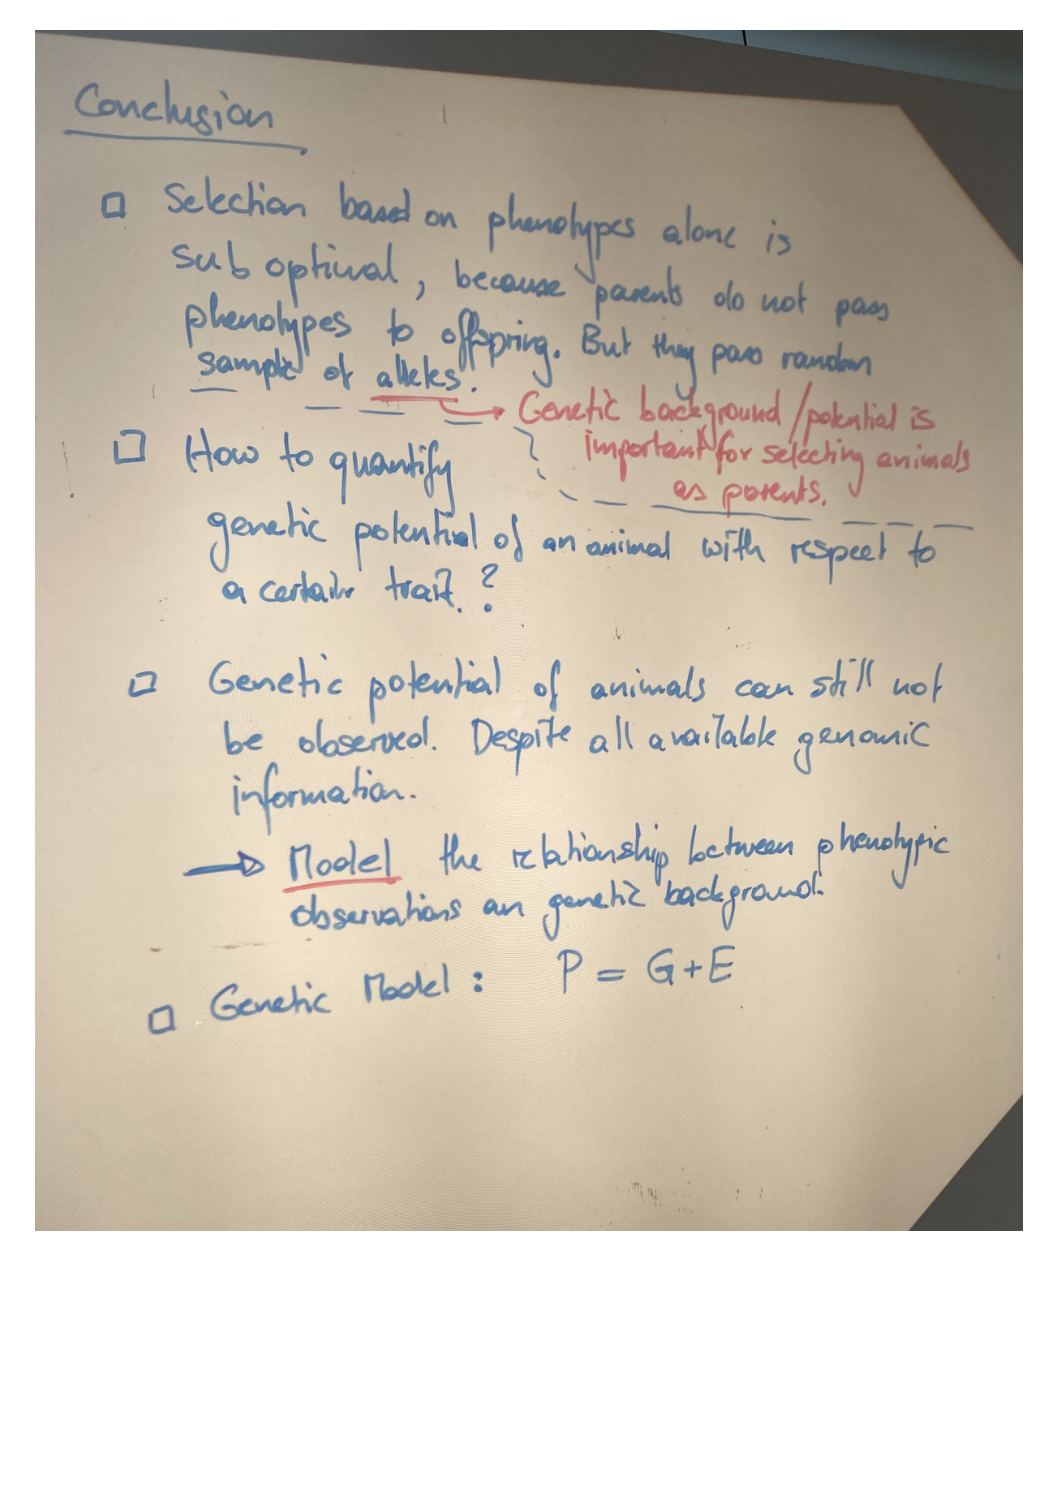 Conclusion
□ Selection based on phenotypes alone is
sub optimal, because parents do not pass
phenotypes to offspring. But they pass random
sample of alleles.
→ Genetic background/potential is
important for selecting animals
as parents.
□ How to quantify
genetic potential of an animal with respect to
a certain trait.?
□ Genetic potential of animals can still not
be observed. Despite all available genomic
information.
→ Model the relationship between phenotypic
observations an genetic background.
□ Genetic Model: P = G+E